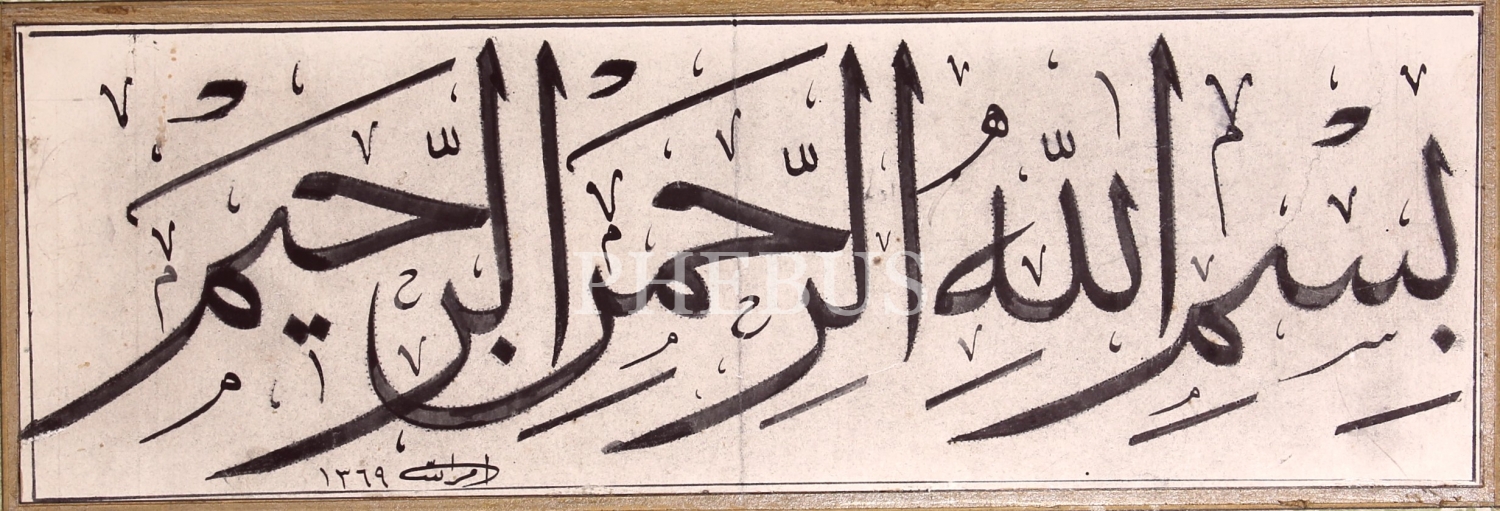 بِسْمِ اللّٰهِ الرَّحْمٰنِ الرَّحِيْمِ
١٣٦٩
PHEBUS